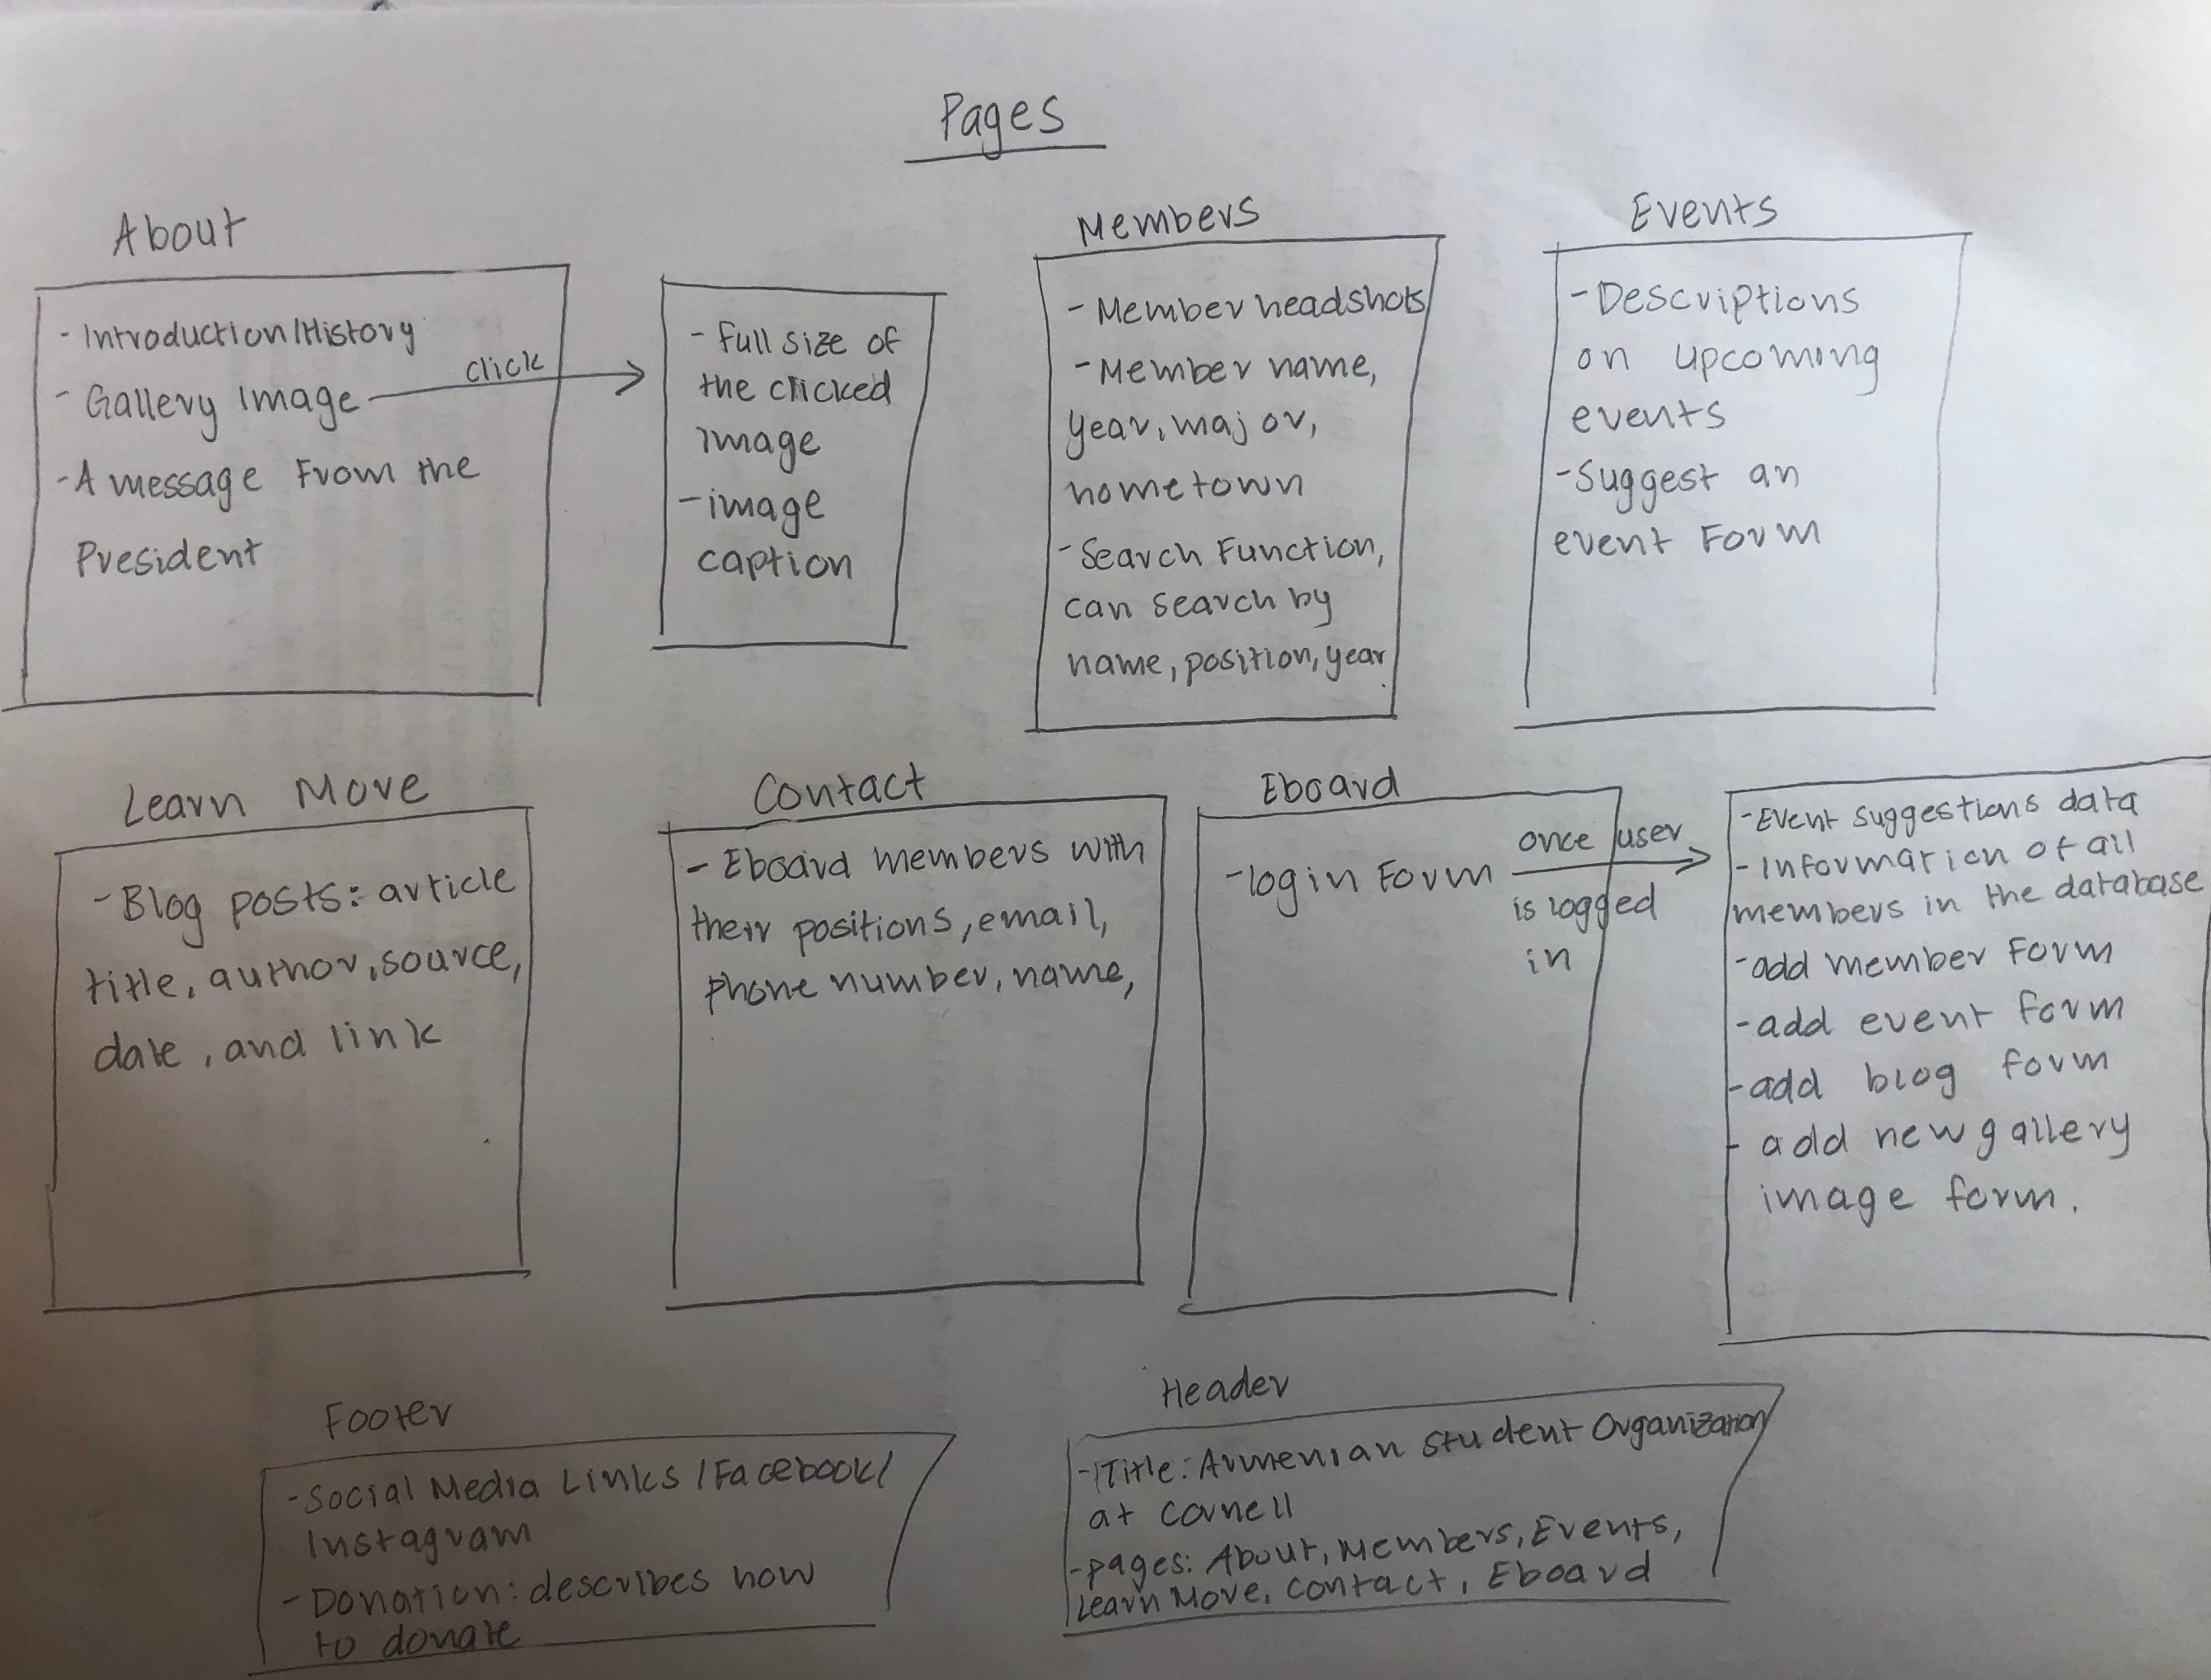 Pages
About
- Introduction/History
- Gallery Image
click
- A message From the
President
- Full size of
the clicked
image
- image
caption
Members
- Member headshots
- Member name,
year, major,
hometown
- Search Function,
can search by
name, position, year
Events
- Descriptions
on upcoming
events
- Suggest an
event Form
Learn More
- Blog posts: article
title, author, source,
date, and link
Contact
- Eboard members with
their positions, email,
phone number, name,
Eboard
- login Form
once user
is logged
in
- Event suggestions data
- Information of all
members in the database
- add member Form
- add event form
- add blog form
- add new gallery
image form.
Footer
- Social Media Links / Facebook /
Instagram
- Donation: describes how
to donate
Header
- Title: Armenian Student Organization
at Cornell
- pages: About, Members, Events,
Learn More, Contact, Eboard